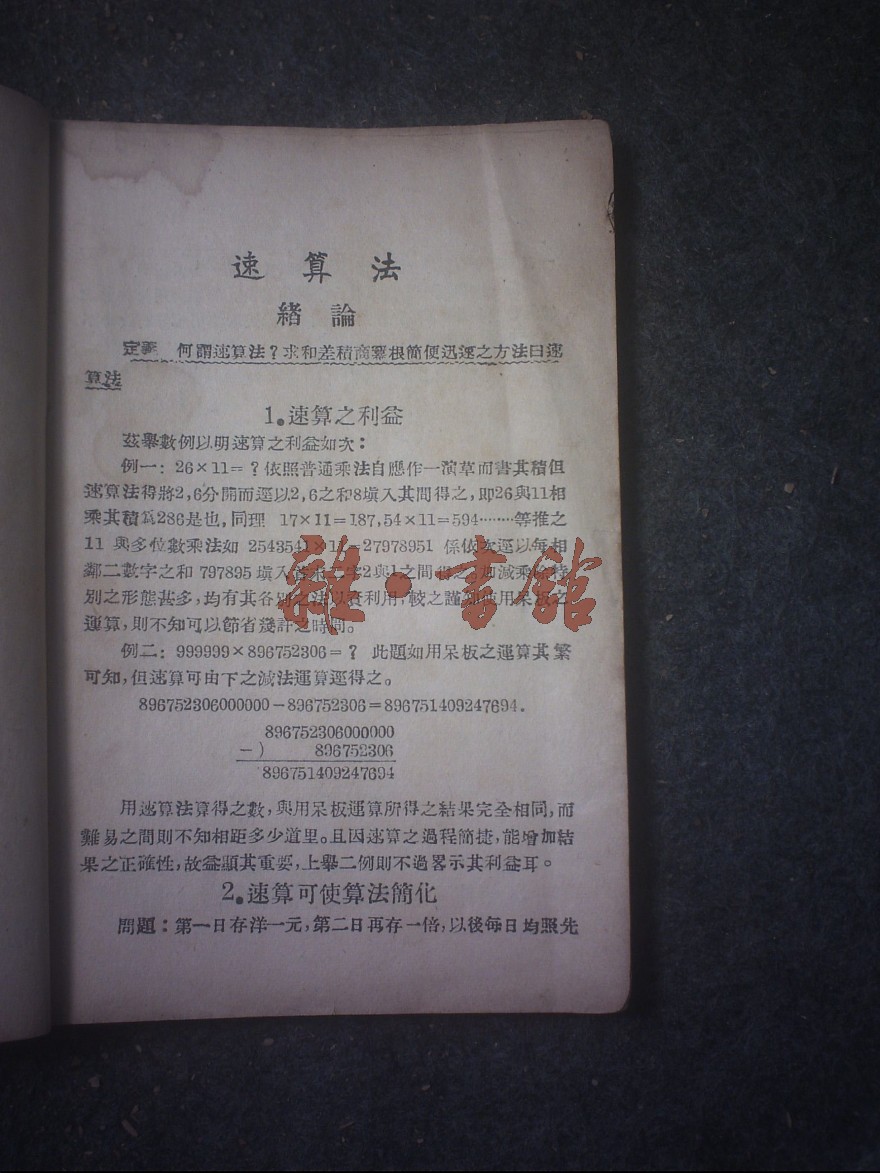 速算法
緒論
定義 何謂速算法?求和差積商冪根簡便迅逕之方法曰速
算法
1.速算之利益
茲舉數例以明速算之利益如次:
例一: 26×11=?依照普通乘法自應作一演草而書其積但
速算法得將2,6分開而逕以2,6之和8塡入其間得之,即26與11相
乘其積爲286是也,同理 17×11=187,54×11=594………等推之
11 與多位數乘法如 2543541×11=27978951 係依次逕以每相
鄰二數字之和 797895 塡入首末二字2與1之間得之,加減乘除特
別之形態甚多,均有其各別之法以資利用,較之謹守應用呆板之
運算,則不知可以節省幾許之時間。
例二: 999999×896752306=? 此題如用呆板之運算其繁
可知,但速算可由下之減法運算逕得之。
896752306000000-896752306=896751409247694.
896752306000000
-) 896752306
896751409247694
用速算法算得之數,與用呆板運算所得之結果完全相同,而
難易之間則不知相距多少道里。且因速算之過程簡捷,能增加結
果之正確性,故益顯其重要,上舉二例則不過畧示其利益耳。
2.速算可使算法簡化
問題:第一日存洋一元,第二日再存一倍,以後每日均照先
雜·書館